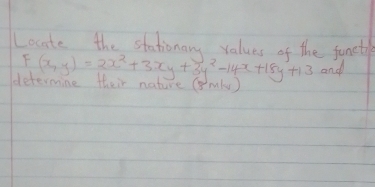 Locate the stationary values of the functi
F(x, y) = 2x² + 3xy + 3y² - 14x + 18y + 13 and
determine their nature (8 mks)